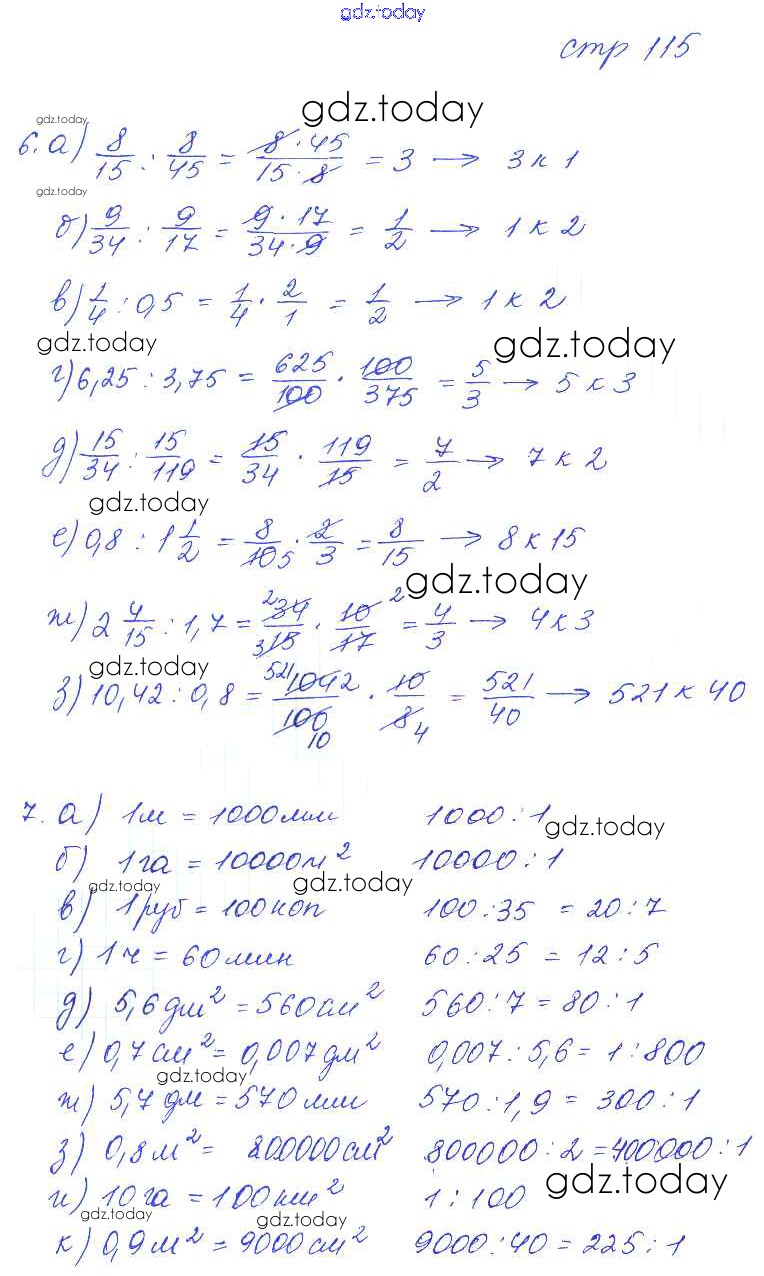 gdz.today
стр 115
gdz.today
gdz.today
6. а) 8/15 : 8/45 = 8·45/15·8 = 3 → 3 к 1
gdz.today
б) 9/34 : 9/17 = 9·17/34·9 = 1/2 → 1 к 2
в) 1/4 : 0,5 = 1/4 · 2/1 = 1/2 → 1 к 2
gdz.today
gdz.today
г) 6,25 : 3,75 = 625/100 · 100/375 = 5/3 → 5 к 3
д) 15/34 : 15/119 = 15/34 · 119/15 = 7/2 → 7 к 2
gdz.today
е) 0,8 : 1 1/2 = 8/10 5 · 2/3 = 8/15 → 8 к 15
gdz.today
ж) 2 4/15 : 1,7 = 2 34/3 15 · 10 2/17 = 4/3 → 4 к 3
gdz.today
з) 10,42 : 0,8 = 521 1042/100 10 · 10/8 4 = 521/40 → 521 к 40
7. а) 1м = 1000мм 1000 : 1
gdz.today
б) 1га = 10000м² 10000 : 1
gdz.today
gdz.today
в) 1руб = 100коп 100 : 35 = 20 : 7
г) 1ч = 60мин 60 : 25 = 12 : 5
д) 5,6дм² = 560см² 560 : 7 = 80 : 1
е) 0,7см² = 0,007дм² 0,007 : 5,6 = 1 : 800
gdz.today
ж) 5,7дм = 570мм 570 : 1,9 = 300 : 1
з) 0,8м² = 800000см² 800000 : 2 = 400000 : 1
gdz.today
и) 10га = 100км² 1 : 100
gdz.today
gdz.today
к) 0,9м² = 9000см² 9000 : 40 = 225 : 1